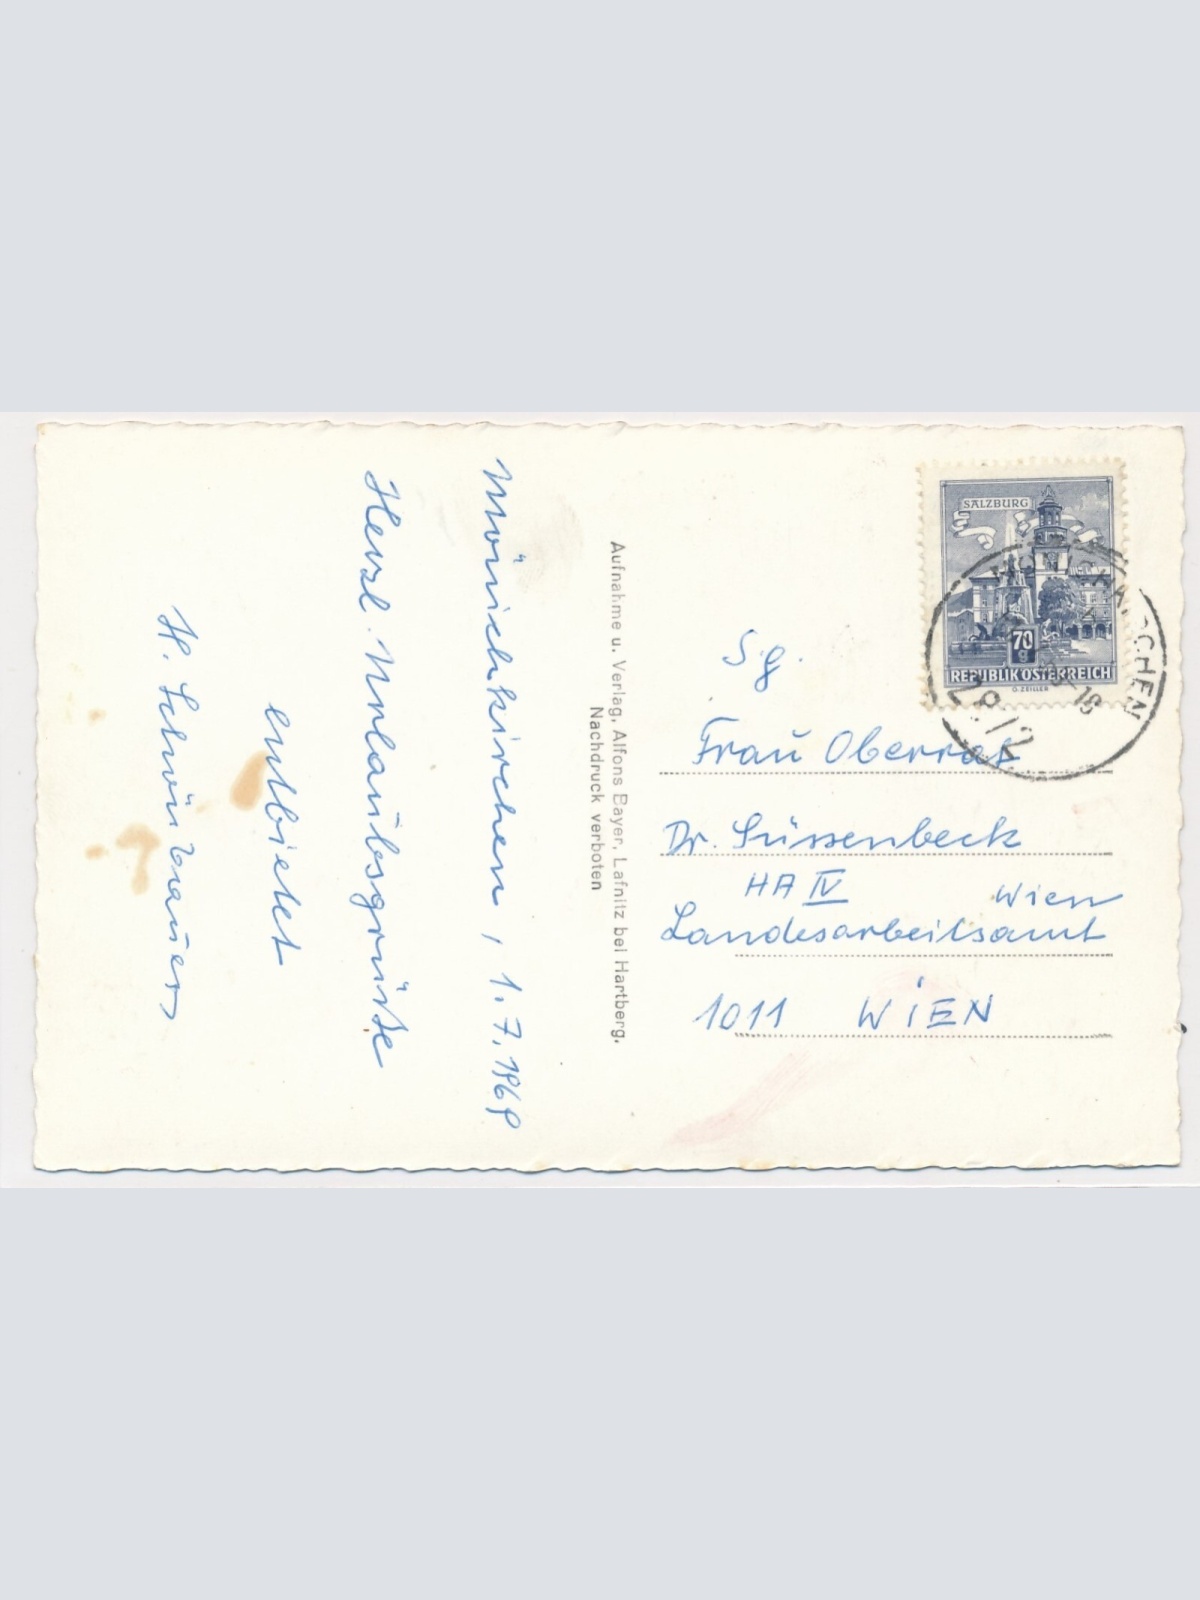 Mönichkirchen, 1.7.1969
Herzl. Urlaubsgrüße
entbietet
Aufnahme u. Verlag, Alfons Bayer, Lafnitz bei Hartberg.
Nachdruck verboten
SALZBURG
70
g
REPUBLIK ÖSTERREICH
O. ZEILLER
S.g.
Frau Oberrat
Dr. Süssenbeck
HA IV Wien
Landesarbeitsamt
1011 WIEN